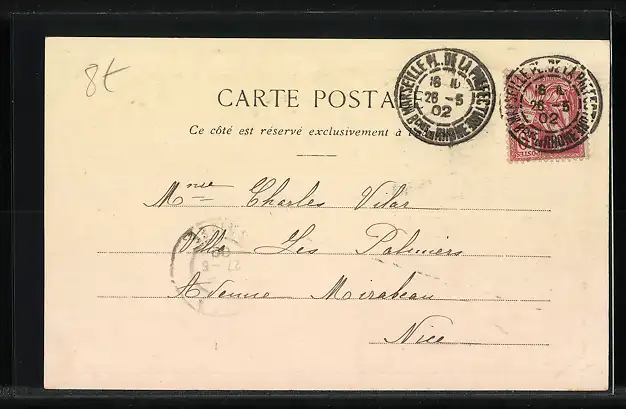 8t
CARTE POSTA
Ce côté est réservé exclusivement à
MARSEILLE PL. DE LA PREFECTURE
26 -5
02
BCHES DU RHONE
MARSEILLE PL. DE LA PREFECTURE
26 -5
02
DU RHONE
POSTES
Mme Charles Vilar
Villa Les Palmiers
Avenue Mirabeau
Nice